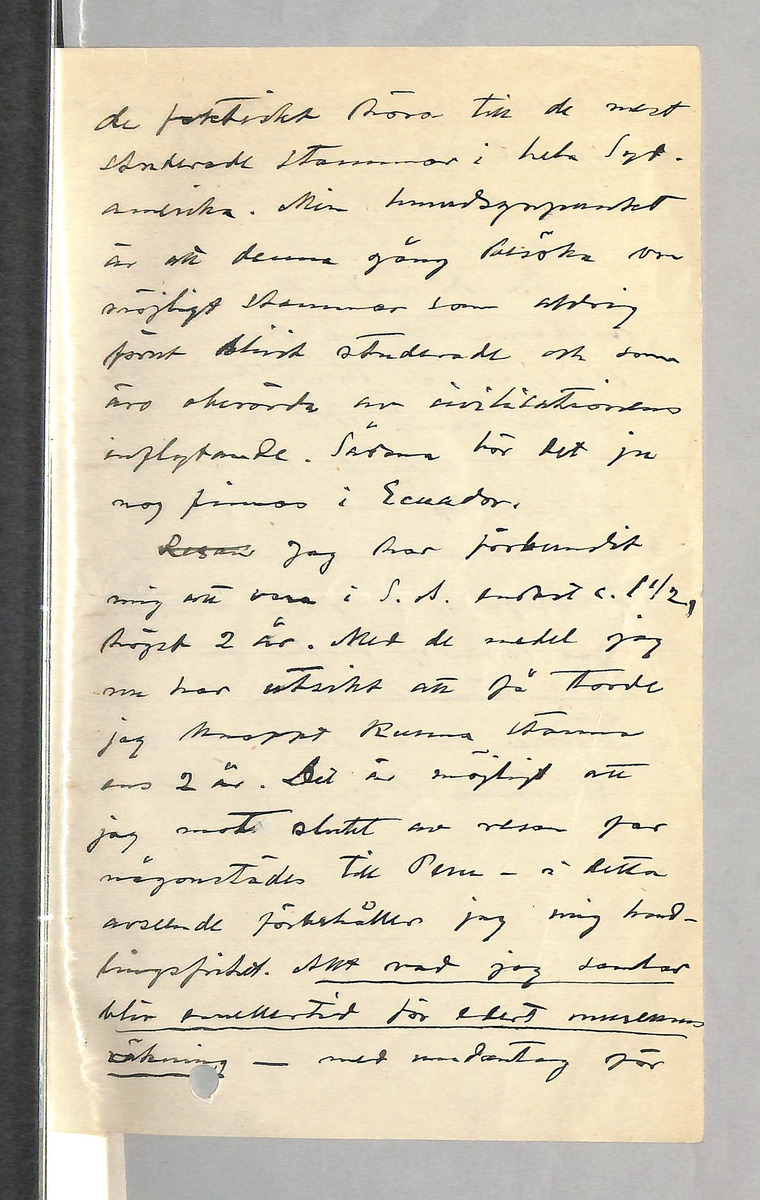 de faktiskt höra till de mest
studerade stammar i hela Syd-
amerika. Min huvudsynpunkt
är att denna gång besöka om
möjligt stammar som aldrig
förut blivit studerade och som
äro oberörda av civilisationens
inflytande. Sådana bör det ju
nog finnas i Ecuador.
Resan Jag har förbundit
mig att vara i S. A. endast c. 1 1/2,
högst 2 år. Med de medel jag
nu har utsikt att få torde
jag knappt kunna stanna
ens 2 år. Det är möjligt att
jag mot slutet av resan far
någonstädes till Peru – i detta
avseende förbehåller jag mig hand-
lingsfrihet. Allt vad jag samlar
blir emellertid för edert museums
räkning — med undantag för